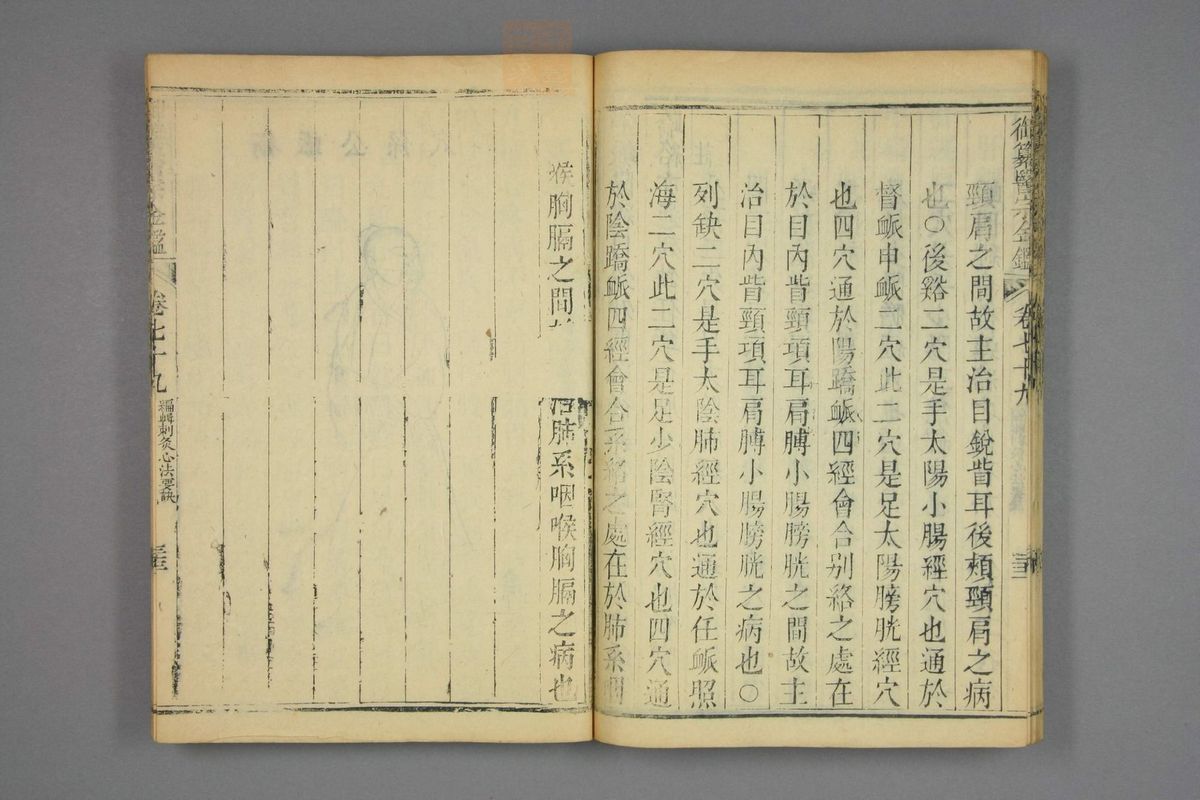 御纂醫宗金鑑 卷七十九 三十三
頸肩之間故主治目銳眥耳後頰頸肩之病
也○後谿二穴是手太陽小腸經穴也通於
督脈申脈二穴此二穴是足太陽膀胱經穴
也四穴通於陽蹻脈四經會合别絡之處在
於目內眥頸項耳肩膊小腸膀胱之間故主
治目內眥頸項耳肩膊小腸膀胱之病也○
列缺二穴是手太陰肺經穴也通於任脈照
海二穴此二穴是足少陰腎經穴也四穴通
於陰蹻脈四經會合系絡之處在於肺系咽
喉胸膈之間 治肺系咽喉胸膈之病也
金鑑 卷七十九 編輯刺灸心法要訣 三十三